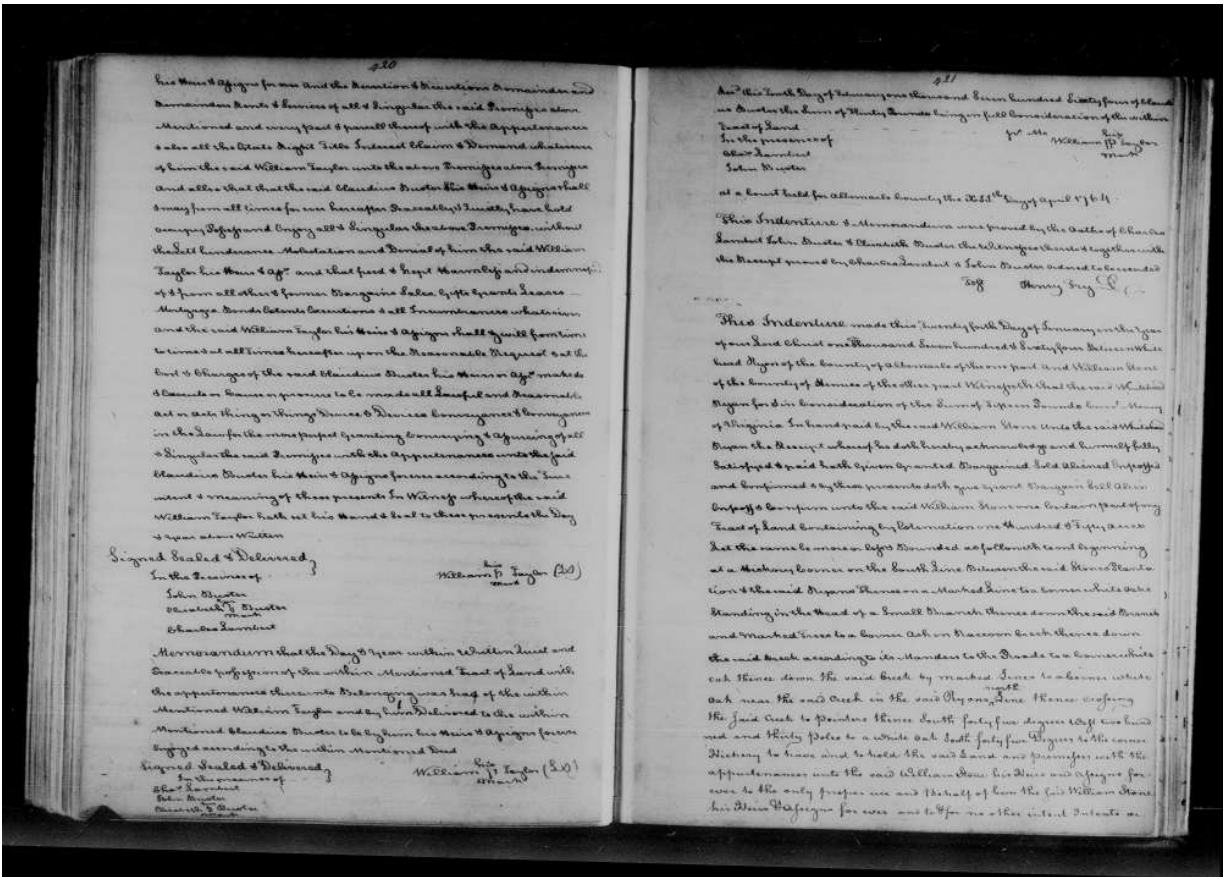 420
his Heirs & Assigns for ever And the Reversion & Reversions Remainder and
Remainders Rents & Services of all & Singular the said Premises above
Mentioned and every part & parcell thereof with the Appertenances
& also all the Estate Right Title Interest Claim & Demand whatsoever
of him the said William Taylor unto the above Premises above Premises
And allso that that the said Claudius Buster his Heirs & Assigns shall
& may from all times for ever hereafter Peaceably & Quietly have hold
occupey Possess and Enjoy all & Singular the above Premises without
the Lett hinderance Molestation and Denial of him the said William
Taylor his Heirs & Assns and that freed & Kept Harmless and indemnifi
of & from all other & former Bargains Sales Gifts Grants Leases
Mortgage Bonds Extents Executions & all Incumbrances whatsoever
And the said William Taylor his Heirs & Assigns shall & will from time
to time & at all Times hereafter upon the Reasonable Request & at the
Cost & Charges of the said Claudius Buster his Heirs or Assns make do
& Execute or Cause or procure to be made all Lawful and Reasonable
Act or Acts thing or things Device & Devices Conveyance & Conveyances
in the Law for the more perfect Granting Conveying & Assureing of all
& Singular the said Premises with the Appertenances unto the said
Claudius Buster his Heirs & Assigns forever according to the True
intent & meaning of these presents In Witness whereof the said
William Taylor hath set his Hand & Seal to these presents the Day
& year above Written
Signed Sealed & Delivered
In the Presince of
John Buster
Elizabeth Buster
mark
Charles Lambert
his
William P Taylor (LS)
mark
Memorandum that the Day & Year within Written Quiet and
Peaceable possession of the within Mentioned Tract of Land with
the appertenances thereunto Belonging was had of the within
Mentioned William Taylor and by him Delivered to the within
Mentioned Claudius Buster to be by him his Heirs & Assigns forever
Enjoyed according to the within Mentioned Deed
Signed Sealed & Delivered
In the presence of
Chas Lambert
John Buster
Elizabeth Buster
mark
his
William P Taylor (LS)
mark
421
Recd this Tenth Day of February one thousand Seven hundred Sixty four of Claudi
us Buster the Sum of Thirty Pounds being in full Consideration of the within
Tract of Land
In the presence of
Chas Lambert
John Buster
pr Me
his
William P Taylor
mark
at a Court held for Albemarle County the Day of April 1764
This Indenture & Memorandum were proved by the Oaths of Charles
Lambert John Buster & Elizabeth Buster the Witnesses thereto & together with
the Receipt proved by Charles Lambert & John Buster ordered to be recorded
Test Henry Fry
This Indenture made this Twenty forth Day of January in the Year
of our Lord Christ one Thousand Seven hundred & Sixty four Between White
head Ryon of the County of Albemarle of the one part And William Stone
of the County of of the other part Witnesseth that the said Whitehead
Ryan for & in Consideration of the Sum of Fifteen Pounds Curt Money
of Virginia In hand paid by the said William Stone Unto the said Whitehead
Ryan the Receipt whereof he doth hereby acknowledge and himself fully
Satisfyed & paid hath Given Granted Bargained Sold Aliened Enfeoffed
and Confirmed & by these presents doth give Grant Bargain Sell Alien
Enfeoff & Confirm unto the said William Stone one Certain part of my
Tract of Land Containing by Estemation one Hundred & Fifty acres
Let the same be more or less Bounded as followeth to wit beginning
at a Hickory Corner on the South Line Between the said Stones Planta
tion & the said Ryans Thence on a Marked Line to a Corner white Oake
Standing in the Head of a Small Branch thence down the said Branch
and Marked Trees to a Corner Ash on Raccoon Creek thence down
the said Creek according to its Manders to the Roade to a Corner white
oak thence down the said Creek by marked Lines to a Corner white
north
Oak near the said Creek in the said Ryons Line thence crossing
the said Creek to pointers thence South forty five degrees West two hund
red and thirty Poles to a White Oak South forty five Degrees to the corner
Hickery to have and to hold the said Land and premisses with the
appurtenances unto the said William Stone his Heirs and Assigns for
ever to the only proper use and Behalf of him the said William Stone
his Heirs & Assigns for ever and to & for no other intent Intents or